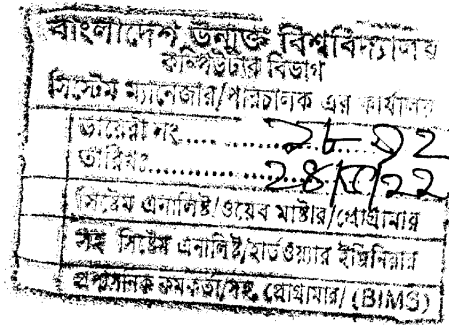 বাংলাদেশ উন্মুক্ত বিশ্ববিদ্যালয়
কম্পিউটার বিভাগ
সিস্টেম ম্যানেজার/পরিচালক এর কার্যালয়
ডায়েরী নং
তারিখঃ
সিস্টেম এনালিষ্ট/ওয়েব মাষ্টার/প্রোগ্রামার
সহঃ সিষ্টেম এনালিষ্ট/হার্ডওয়্যার ইঞ্জিনিয়ার
প্রশাসনিক কর্মকর্তা/সহ. প্রোগ্রামার/ (BIMS)